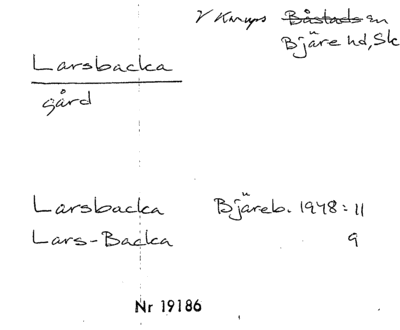 V Karups Båstads sn
Bjäre hd, Sk
Larsbacka
gård
Larsbacka Bjäreb. 1948: 11
Lars-Backa 9
Nr 19186